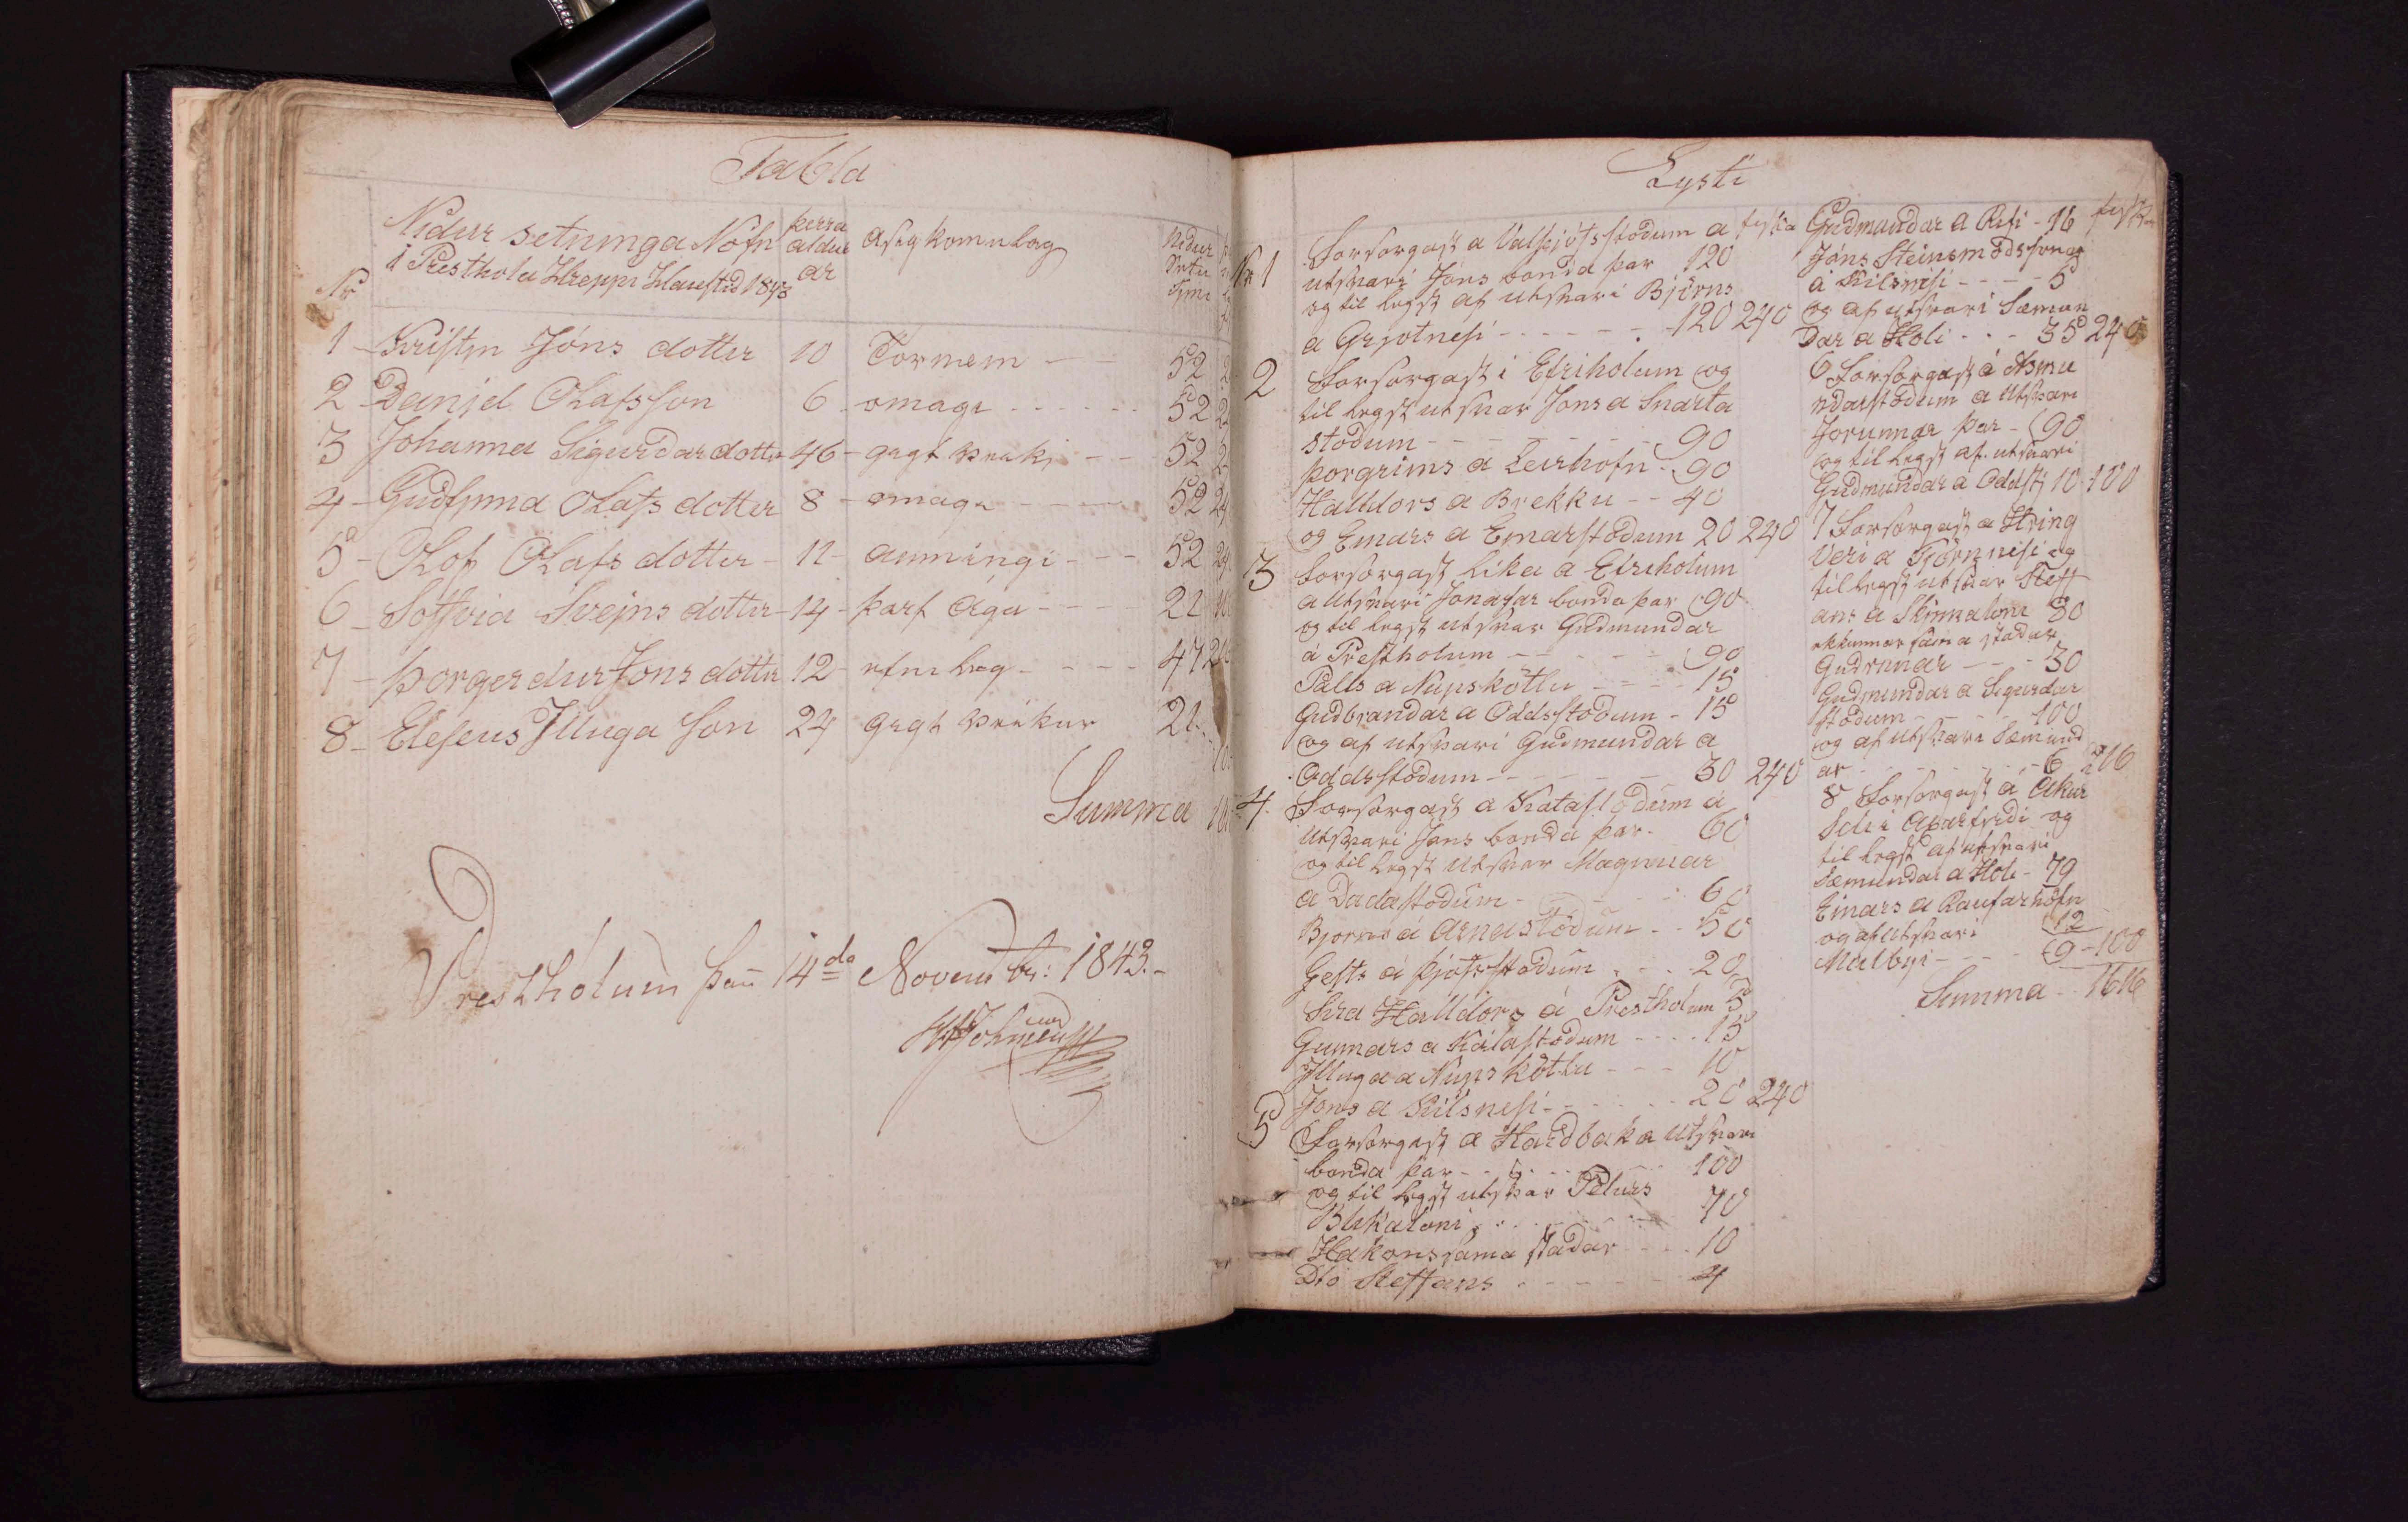 Tabla
Nidur setninga Nöfn
i Presthola Hrepps Haustid 1843
þerra
aldur
ár
ásigkomulag
Nidur
Setu
Tymi
Nr
1 - Kristin Jóns dotter 10 Tormem - - 52
2 - Daniel Olafsson 6 - omage - - - 52
3 Johanna Sigurdar dotter - 46 - - - 52
4 - Gudfinna Olafs dotter 8 - omage - - - 52
5 - Olof Olafs dotter - 11 - aumingi - - - 52
6 - Soffvia Sveins dotter - 14 - þarf Aga - - - 21
7 - þorgerdur Jons dotter 12 - efni leg - - - 47
8 - Eleseus Illuga Son 24 21
Summa
Prestholum þan 14da Novembr: 1843.-
Lysti
fiska
Nr 1 Forsorgast a Valþjófsstodum a
utsvari Jóns bonda þar 120
og til legst af utsvari Björns
a Grjotnesi - - - - - 120 240
2 Forsorgast i Efriholum og
til legst utsvar Jons a Snarta
stodum - - - - - 90
þorgrims a Leirhöfn - 90
Halldors a Brekku - - 40
og Einars a Einarsstodum 20 240
3 Forsorgast lika a Efriholum
a utsvari Jonasar bonda þar 90
og til legst utsvar Gudmundar
á Prestholum - - - - 90
Palls a Nupskötlu - - - 15
Gudbrandar a Oddsstodum - 15
og af utsvari Gudmundar a
Oddsstodum - - - - - 30 240
4 Forsorgast a Katastodum á
utsvari Jons bonda þar - 60
og til legst utsvar Magnusar
a Dadastodum - - - 60
Bjorns á Arnastodum - - 50
Gests á þjofsstodum - - - 20
Sira Halldórs á Prestholum 5
Gunnars a Katastodum - - - - 15
Illuga a Nupskötlu - - - 10
Jons a Kilsnesi - - - - - 20 240
5 Forsorgast a Hardbak a utsvari
bonda þar - - - - - 100
og til legst utsvar Peturs
Blikaloni - - - - - 70
Hakons sama stadar - - - 10
Dto Steffans - - - - - 4
Gudmundar a Rifi - 16
Jóns Steinsmodssonar
á Kilsnesi - - - - 5
og af utsvari Sæmun
dar a Holi - - - 35 240
6 Forsorgast á Asmu
ndarstodum a utsvari
Jorunnar þar - 90
og til legst af utsvari
Gudmundar a Oddst; 10 - 100
7 Forsorgast a Hring
Veri a Tjörnnesi og
til legst utsvar Steff
ans a Skinnaloni 80
ekkiunnar sama stadar
Gudrunar - - - 30
Gudmundar a Sigurdar
stodum - - - - 100
og af utsvari Sæmund
ar - - - - - - 6 216
8 Forsorgast á Akur
Seli i Axarfirdi og
til legst af utsvari
Sæmundar a Holi - 79
Einars a Raufarhöfn
og af utsvari 12
9 - 100
Summa - - 1616